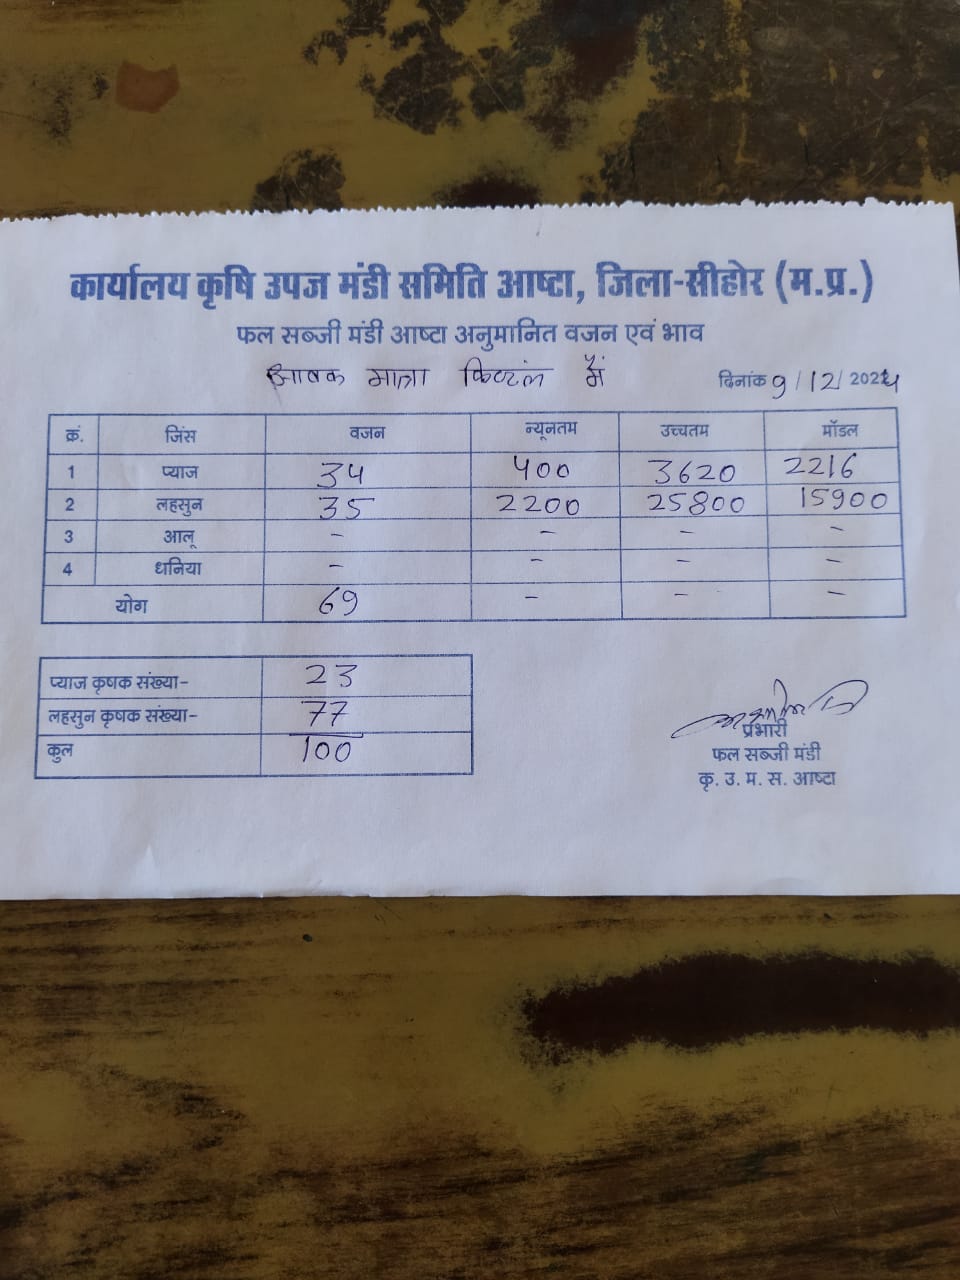 कार्यालय कृषि उपज मंडी समिति आष्टा, जिला-सीहोर (म.प्र.)
फल सब्जी मंडी आष्टा अनुमानित वजन एवं भाव
आवक मात्रा क्विटंल में दिनांक 9/12/2024
क्रं. जिंस वजन न्यूनतम उच्चतम मॉडल
1 प्याज 34 400 3620 2216
2 लहसुन 35 2200 25800 15900
3 आलू - - - -
4 धनिया - - - -
योग 69 - - -
प्याज कृषक संख्या- 23
लहसुन कृषक संख्या- 77
कुल 100
प्रभारी
फल सब्जी मंडी
कृ. उ. म. स. आष्टा